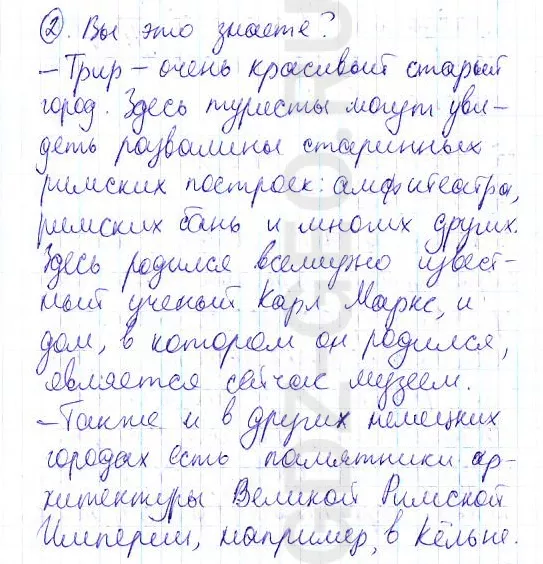 ②. Вы это знаете?
– Трир – очень красивый старый
город. Здесь туристы могут уви-
деть развалины старинных
римских построек: амфитеатра,
римских бань и многих других.
Здесь родился всемирно извест-
ный ученый Карл Маркс, и
дом, в котором он родился,
является сейчас музеем.
– Также и в других немецких
городах есть памятники ар-
хитектуры Великой Римской
Империи, например, в Кёльне.
GDZ-GEO.RU